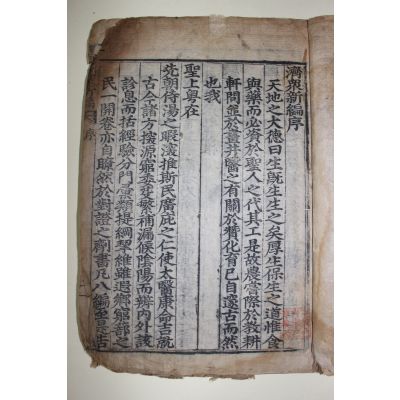 濟衆新編序
天地之大德曰生旣生生之矣厚生保生之道惟食
與藥而必資於聖人之代其工是故農嘗際於敎耕
軒問並於畫井醫之有關於贊化育已自邃古而然
也我
聖上粤在
先朝侍湯之暇滾推斯民廣庇之仁使太醫康命吉就
古今諸方按源窮委芟繁補漏候陰陽而辨內外該
診息而括經驗分門彙類提綱挈維雖遐鄕窮蔀之
民一開卷亦自瞭然於對證之劑書凡八編至是告